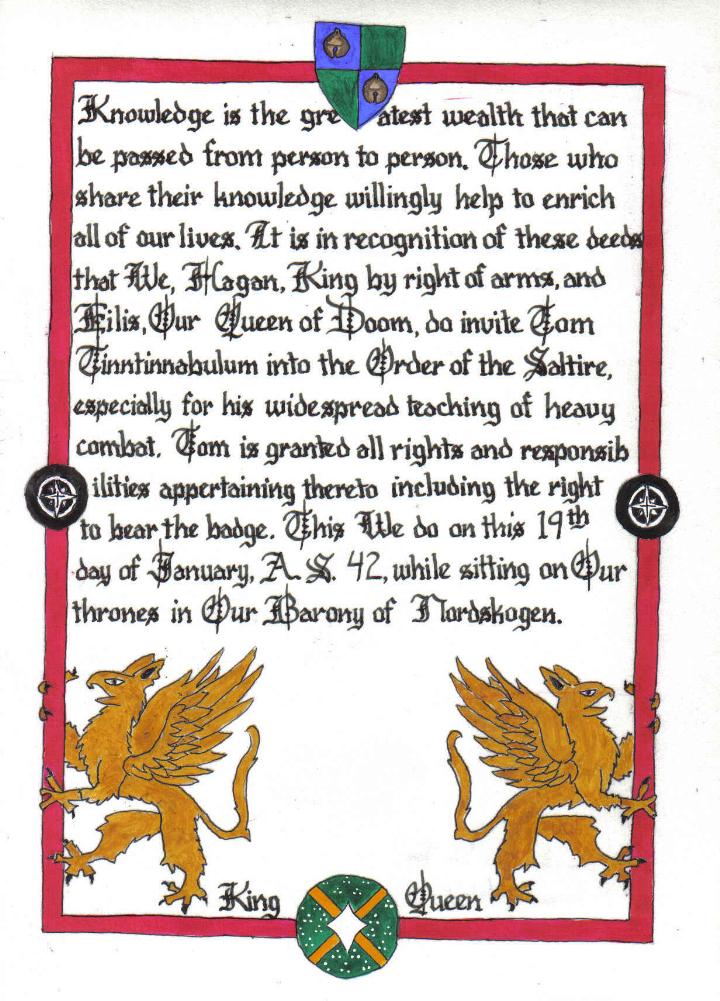 Knowledge is the greatest wealth that can
be passed from person to person. Those who
share their knowledge willingly help to enrich
all of our lives. It is in recognition of these deeds
that We, Hagan, King by right of arms, and
Eilis, Our Queen of Doom, do invite Tom
Tinntinnabulum into the Order of the Saltire,
especially for his widespread teaching of heavy
combat. Tom is granted all rights and responsib
ilities appertaining thereto including the right
to bear the badge. This We do on this 19th
day of January, A. S. 42, while sitting on Our
thrones in Our Barony of Nordskogen.
King Queen